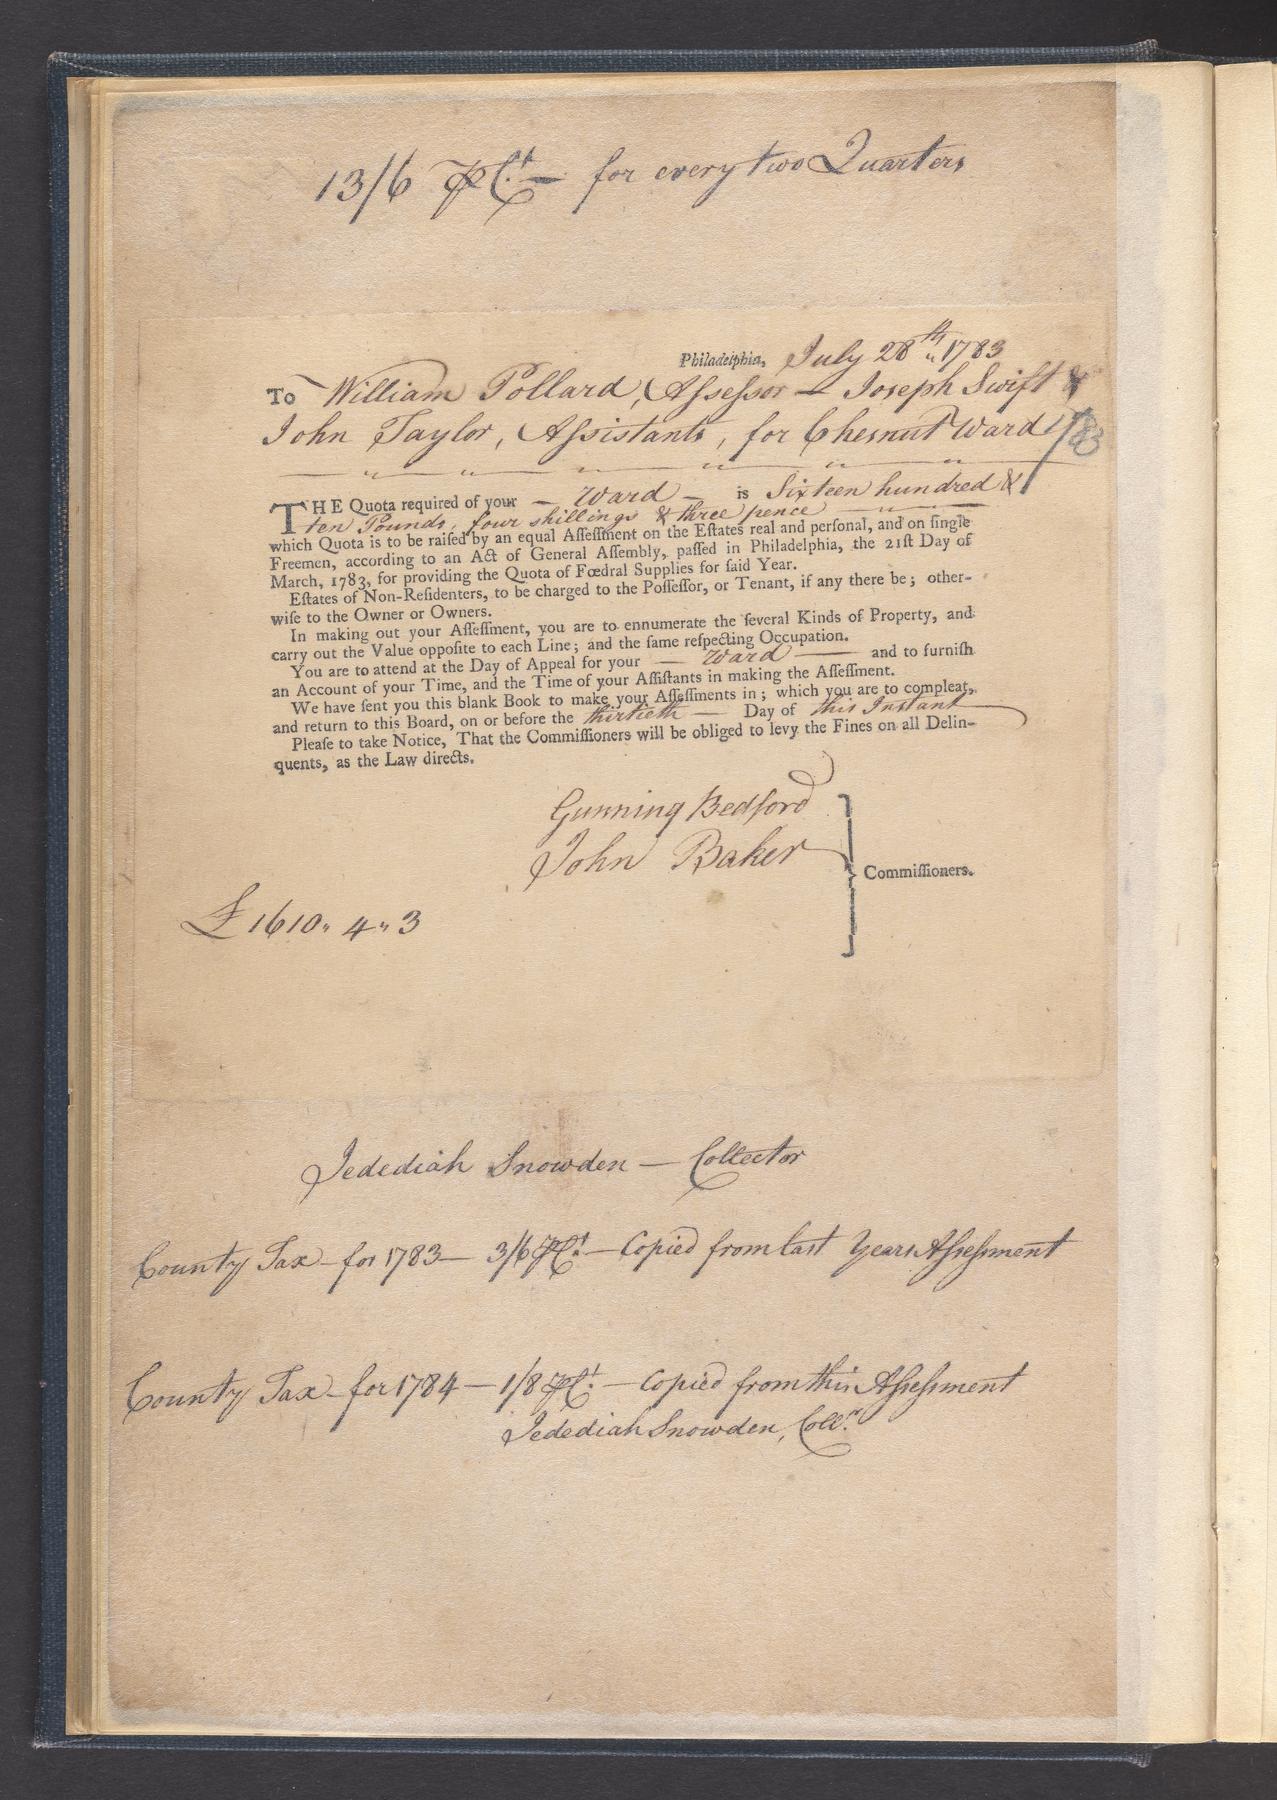 13/6 ⅌ Ct. — for every two Quarters
Philadelphia, July 28th 1783
To William Pollard, Aſseſsor — Joseph Swift &
John Taylor, Aſsistants, for Chesnut Ward
1783
THE Quota required of your — Ward — is Sixteen hundred &
ten Pounds, four shillings & three pence
which Quota is to be raiſed by an equal Aſſeſſment on the Eſtates real and perſonal, and on ſingle
Freemen, according to an Act of General Aſſembly, paſſed in Philadelphia, the 21ſt Day of
March, 1783, for providing the Quota of Fœdral Supplies for ſaid Year.
Eſtates of Non-Reſidenters, to be charged to the Poſſeſſor, or Tenant, if any there be; other-
wiſe to the Owner or Owners.
In making out your Aſſeſſment, you are to ennumerate the ſeveral Kinds of Property, and
carry out the Value oppoſite to each Line; and the ſame reſpecting Occupation.
You are to attend at the Day of Appeal for your — Ward — and to furniſh
an Account of your Time, and the Time of your Aſſiſtants in making the Aſſeſſment.
We have ſent you this blank Book to make your Aſſeſſments in; which you are to compleat,
and return to this Board, on or before the thirtieth — Day of this Instant
Pleaſe to take Notice, That the Commiſſioners will be obliged to levy the Fines on all Delin-
quents, as the Law directs.
Gunning Bedford
John Baker
Commiſſioners.
£1610〃4〃3
Jedediah Snowden — Collector
County Tax – for 1783 — 3/6 ⅌ Ct. — Copied from last Years Aſseſsment
County Tax – for 1784 — 1/8 ⅌ Ct. — Copied from this Aſseſsment
Jedediah Snowden, Collr.